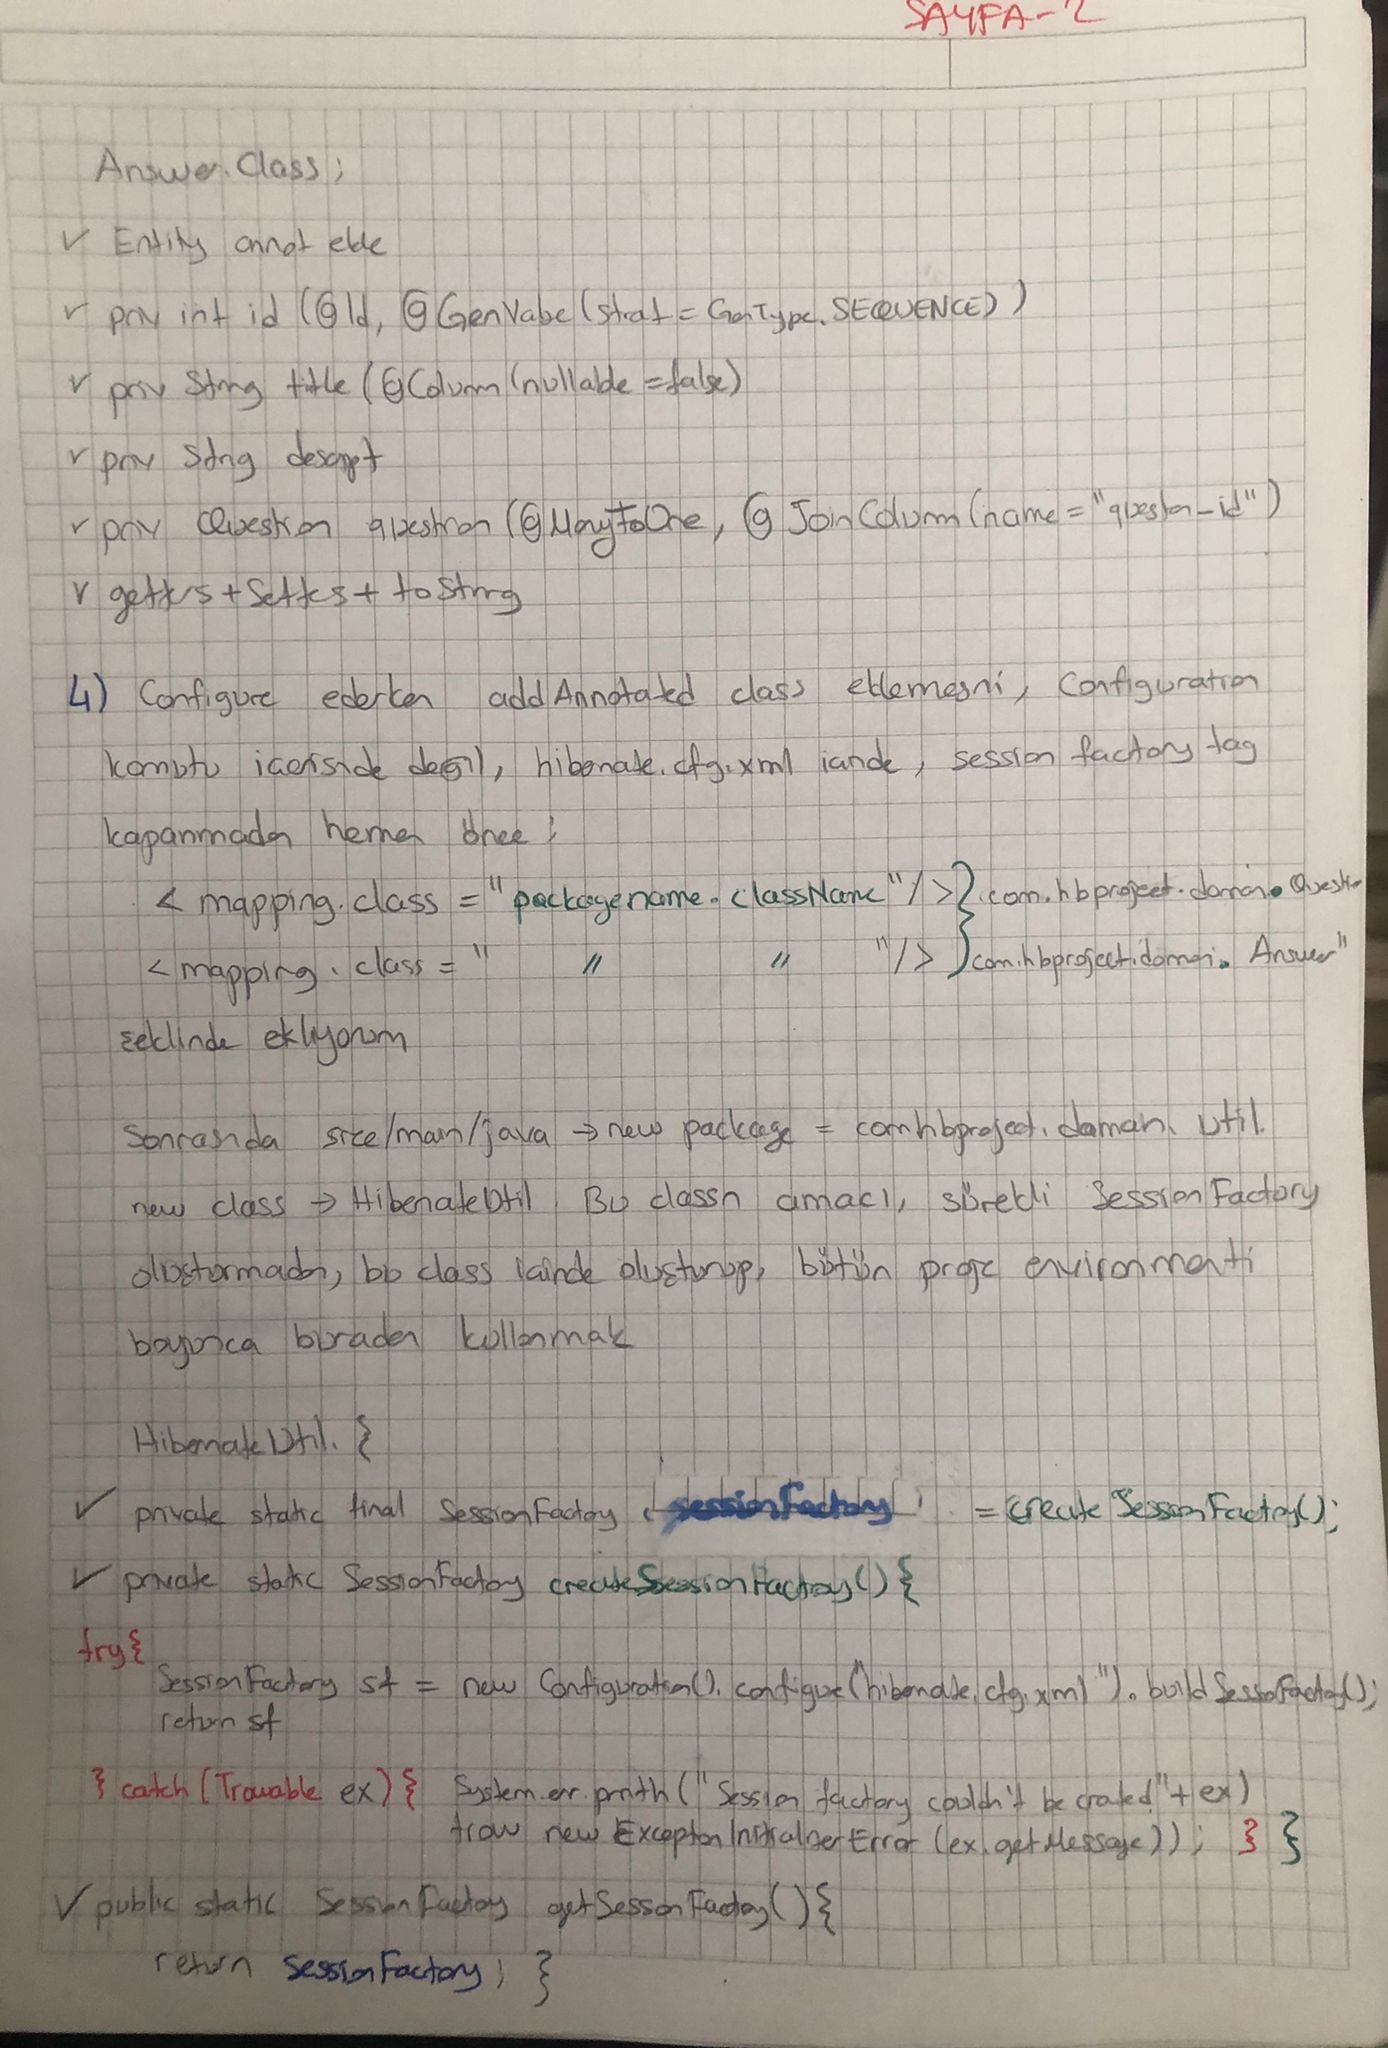 SAYFA-2
Answer.Class;
✓ Entity annot ekle
✓ priv int id (@Id, @GenValue(strat = GenType.SEQUENCE))
✓ priv String title (@Column(nullable=false)
✓ priv String descript
✓ priv Question question (@ManyToOne, @JoinColumn(name="question_id")
✓ getters+setters+toString
4) Configure ederken addAnnotated class eklemesini, Configuration
komutu icerisinde değil, hibernate.cfg.xml icinde, session factory tag
kapanmadan hemen önce;
< mapping.class = "packagename.className"/> } com.hbproject.domain.Question
< mapping.class = " " " "/> } com.hbproject.domain.Answer"
şeklinde ekliyorum
Sonrasında srce/main/java → new package = com.hbproject.domain.util.
new class → HibernateUtil. Bu classın amacı, sürekli SessionFactory
oluşturmadan, bu class içinde oluşturup, bütün proje environmenti
boyunca buradan kullanmak
HibernateUtil. {
✓ private static final SessionFactory sessionFactory = createSessionFactory();
✓ private static SessionFactory createSessionFactory() {
try{
SessionFactory sf = new Configuration().configure("hibernate.cfg.xml").buildSessionFactory();
return sf
} catch (Trowable ex) { System.err.println("Session factory couldn't be created"+ ex)
trow new ExceptionInInitializerError (ex.getMessage)); } }
✓ public static SessionFactory getSessionFactory() {
return sessionFactory; }